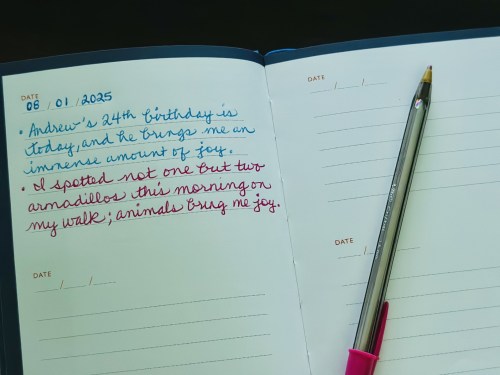 DATE
08 / 01 / 2025
• Andrew's 24th birthday is
today, and he brings me an
immense amount of joy.
• I spotted not one but two
armadillos this morning on
my walk; animals bring me joy.
DATE
__/__/__
DATE
__/__/__
DATE
__/__/__